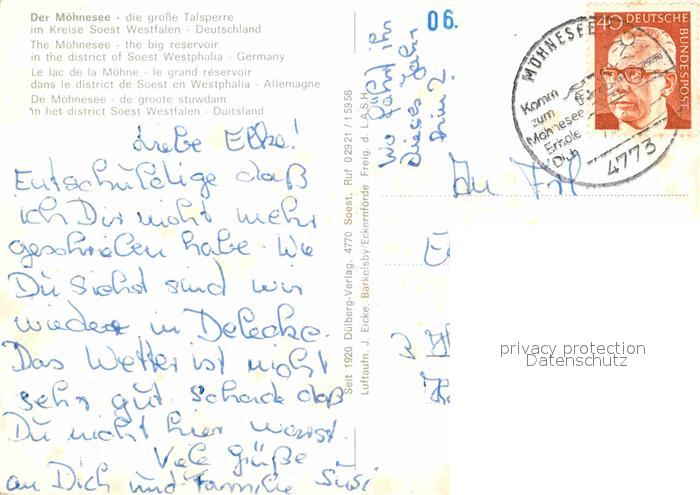 Der Möhnesee · die große Talsperre
im Kreise Soest Westfalen · Deutschland
The Möhnesee · the big reservoir
in the district of Soest Westphalia · Germany
Le lac de la Möhne · le grand réservoir
dans le district de Soest en Westphalia · Allemagne
De Möhnesee · de groote stuwdam
in het district Soest Westfalen · Duitsland
Liebe Elke!
Entschuldige daß
ich Dir nicht mehr
geschrieben habe. Wie
Du siehst sind wir
wieder in Delecke.
Das Wetter ist nicht
sehr gut. Schade daß
Du nicht hier warst.
Viele Grüße
an Dich und Familie Susi
Seit 1920 Dülberg-Verlag, 4770 Soest, Ruf 02921 / 15956
Luftaufn. J. Eicke, Barkelsby/Eckernförde. Freig. d. L.A.S.H.
Wo fahrt ihr
dieses Jahr
hin?
06.
MÖHNESEE
Komm
zum
Möhnesee
Erhole
Dich
4773
40 DEUTSCHE
BUNDESPOST
An Frl
privacy protection
Datenschutz